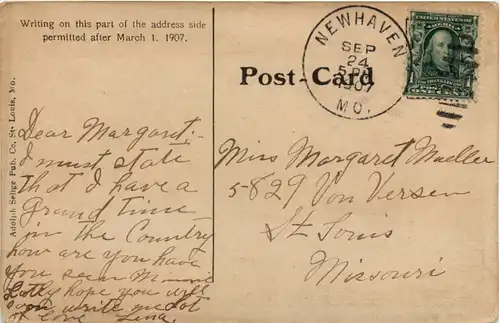 Writing on this part of the address side
permitted after March 1, 1907.
NEWHAVEN
SEP
24
5 PM
1907
MO.
Post-Card
Adolph Selige Pub. Co. St. Louis, Mo.
Dear Margaret:-
I must state
that I have a
Grand time
in the Country
how are you have
you seen
hope you will
soon write me lot
of love Lena.
Miss Margaret Mueller
5829 Von Versen
St Louis
Missouri